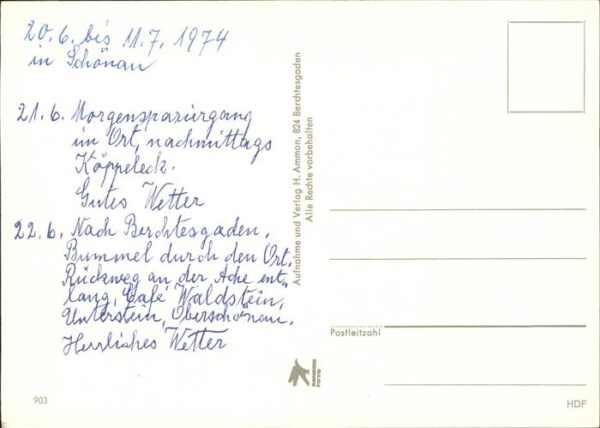 20.6. bis 11.7. 1974
in Schönau
21.6. Morgenspaziergang
im Ort, nachmittags
Köppeleck.
Gutes Wetter
22.6. Nach Berchtesgaden.
Bummel durch den Ort.
Rückweg an der Ache ent-
lang, Café Waldstein,
Unterstein, Oberschönau.
Herrliches Wetter
Aufnahme und Verlag H. Ammon, 824 Berchtesgaden
Alle Rechte vorbehalten
Postleitzahl
AMMON
FOTO
903
HDF